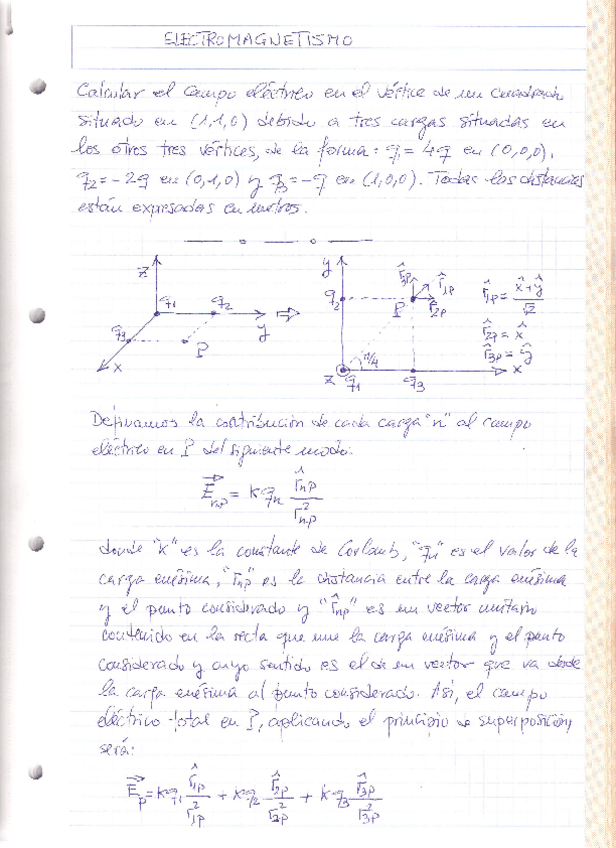 ELECTROMAGNETISMO
Calcular el campo eléctrico en el vértice de un cuadrado
situado en (1,1,0) debido a tres cargas situadas en
los otros tres vértices, de la forma: q₁ = 4q en (0,0,0),
q₂ = -2q en (0,1,0) y q₃ = -q en (1,0,0). Todas las distancias
están expresadas en metros.
z q₁ q₂ y q₃ P x
y q₂ r̂₃p r̂₁p P r̂₂p π/4 z q₁ q₃ x
r̂₁p = (x̂+ŷ)/√2
r̂₂p = x̂
r̂₃p = ŷ
Definamos la contribución de cada carga "n" al campo
eléctrico en P del siguiente modo:
E⃗n,p = K qn r̂n,p / r²n,p
donde "K" es la constante de Corlomb, "qn" es el valor de la
carga enésima, "rnp" es la distancia entre la carga enésima
y el punto considerado y "r̂np" es un vector unitario
contenido en la recta que une la carga enésima y el punto
considerado y cuyo sentido es el de un vector que va desde
la carga enésima al punto considerado. Así, el campo
eléctrico total en P, aplicando el principio de superposición,
será:
E⃗p = K q₁ r̂₁p/r²₁p + K q₂ r̂₂p/r²₂p + K q₃ r̂₃p/r²₃p